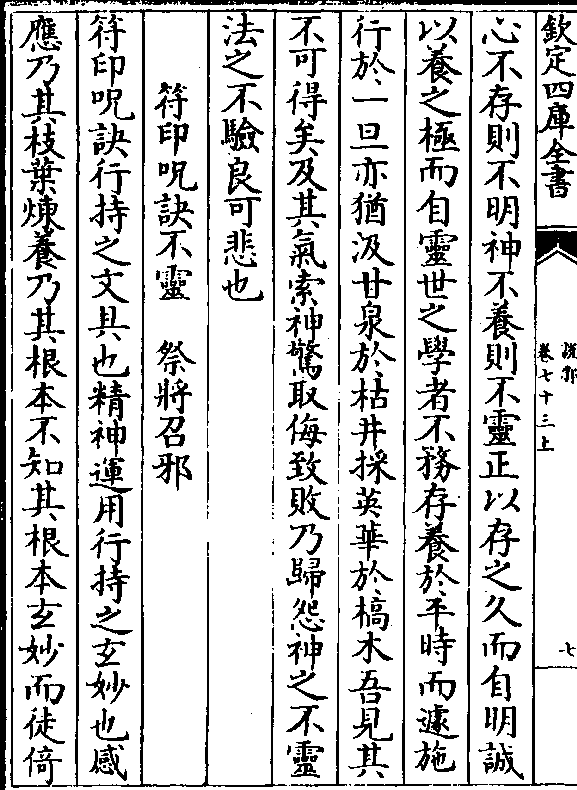 欽定四庫全書
說郛
卷七十三上
七
心不存則不明神不養則不靈正以存之久而自明誠
以養之極而自靈世之學者不務存養於平時而遽施
行於一旦亦猶汲甘泉於枯井採英華於槁木吾見其
不可得矣及其氣索神驚取侮致敗乃歸怨神之不靈
法之不驗良可悲也
符印呪訣不靈　祭將召邪
符印呪訣行持之文具也精神運用行持之玄妙也感
應乃其枝葉煉養乃其根本不知其根本玄妙而徒倚